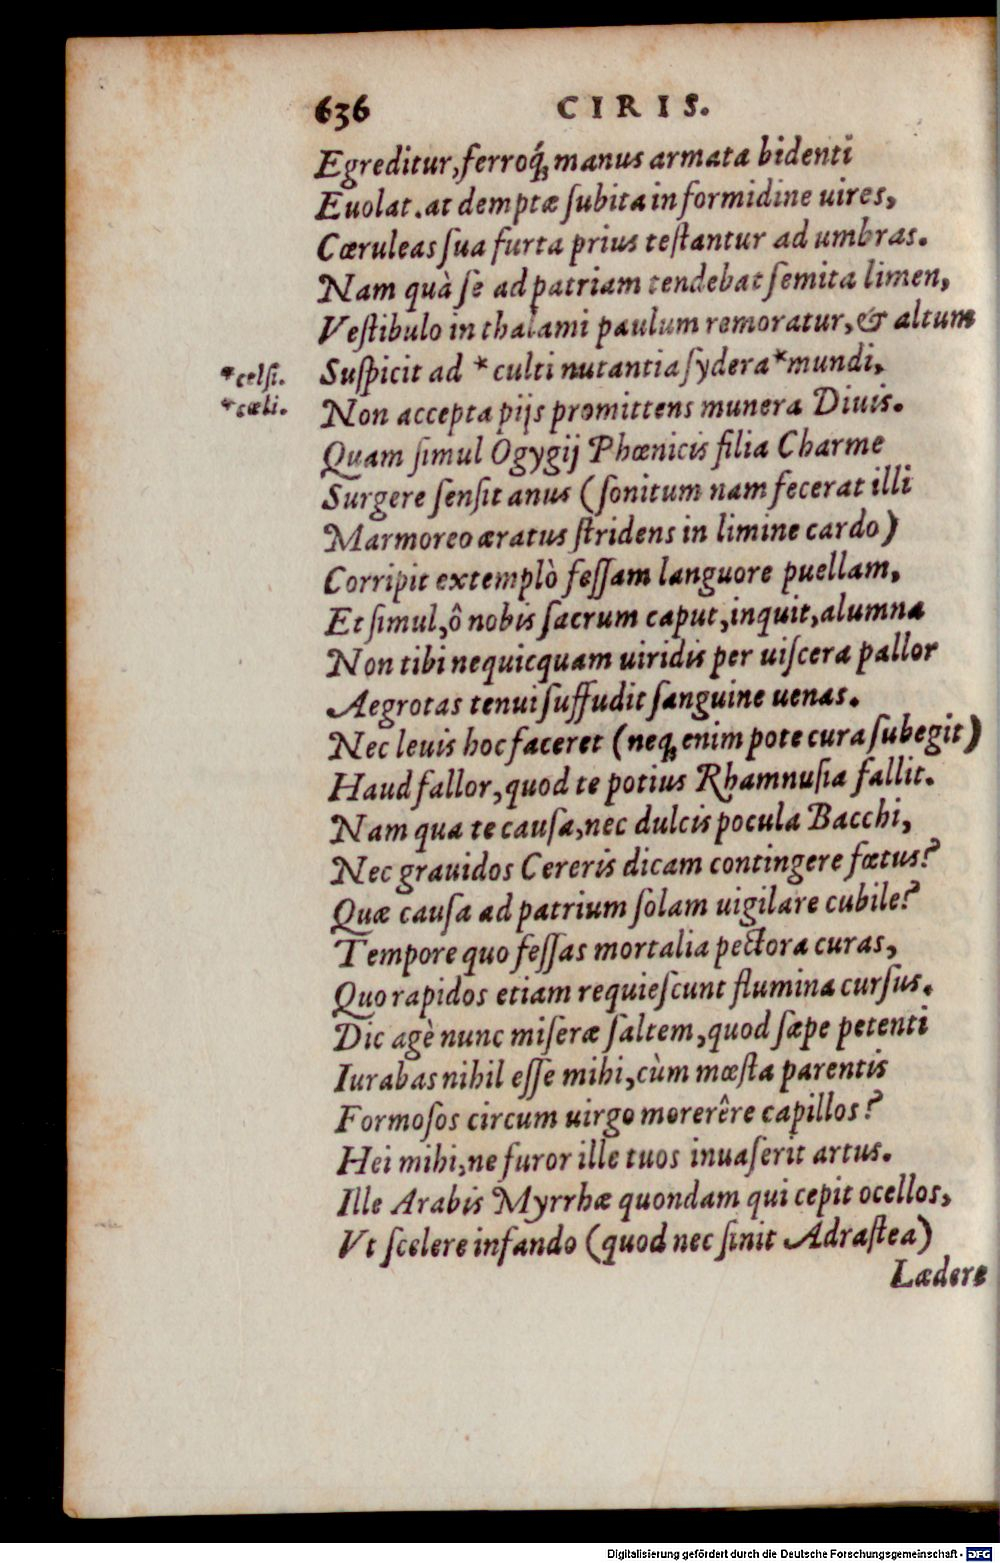 636 CIRIS.
Egreditur, ferroq́; manus armata bidenti
Euolat. at demptæ ſubita in formidine uires,
Cœruleas ſua furta prius teſtantur ad umbras.
Nam quà ſe ad patriam tendebat ſemita limen,
Veſtibulo in thalami paulum remoratur, & altum
*celſi. Suſpicit ad *culti nutantia ſydera *mundi,
*cæli. Non accepta pijs promittens munera Diuis.
Quam ſimul Ogygij Phœnicis filia Charme
Surgere ſenſit anus (ſonitum nam fecerat illi
Marmoreo æratus ſtridens in limine cardo)
Corripit extemplò feſſam languore puellam,
Et ſimul, ô nobis ſacrum caput, inquit, alumna
Non tibi nequicquam uiridis per uiſcera pallor
Aegrotas tenui ſuffudit ſanguine uenas.
Nec leuis hoc faceret (neq; enim pote cura ſubegit)
Haud fallor, quod te potius Rhamnuſia fallit.
Nam qua te cauſa, nec dulcis pocula Bacchi,
Nec grauidos Cereris dicam contingere fœtus?
Quæ cauſa ad patrium ſolam uigilare cubile?
Tempore quo feſſas mortalia pectora curas,
Quo rapidos etiam requieſcunt flumina curſus.
Dic agè nunc miſeræ ſaltem, quod ſæpe petenti
Iurabas nihil eſſe mihi, cùm mœſta parentis
Formoſos circum uirgo morerêre capillos?
Hei mihi, ne furor ille tuos inuaſerit artus.
Ille Arabis Myrrhæ quondam qui cepit ocellos,
Vt ſcelere infando (quod nec ſinit Adraſtea)
Lædere
Digitalisierung gefördert durch die Deutsche Forschungsgemeinschaft - DFG